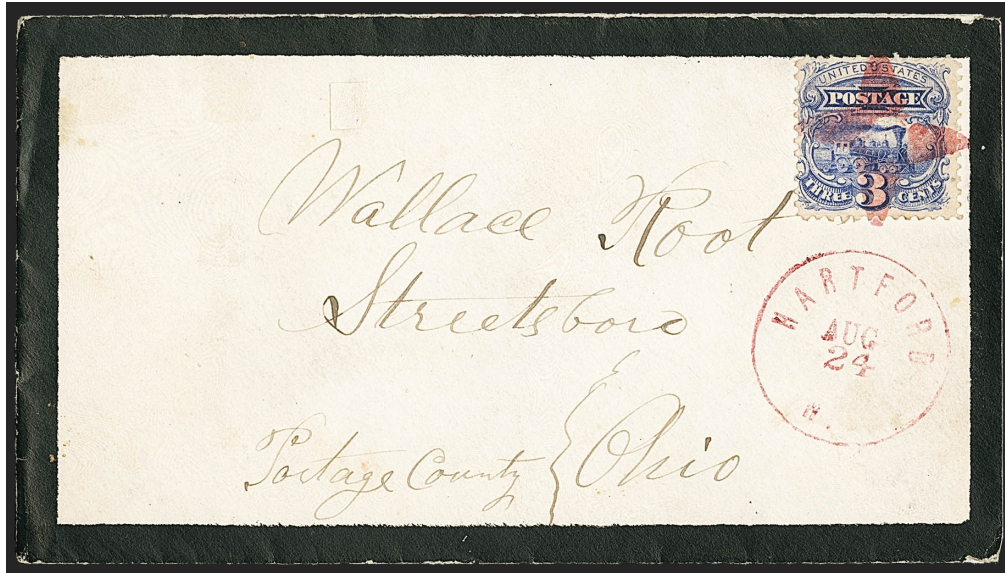 UNITED STATES
POSTAGE
THREE 3 CENTS
Wallace Root
Streetsboro
Portage County
Ohio
HARTFORD
AUG
24